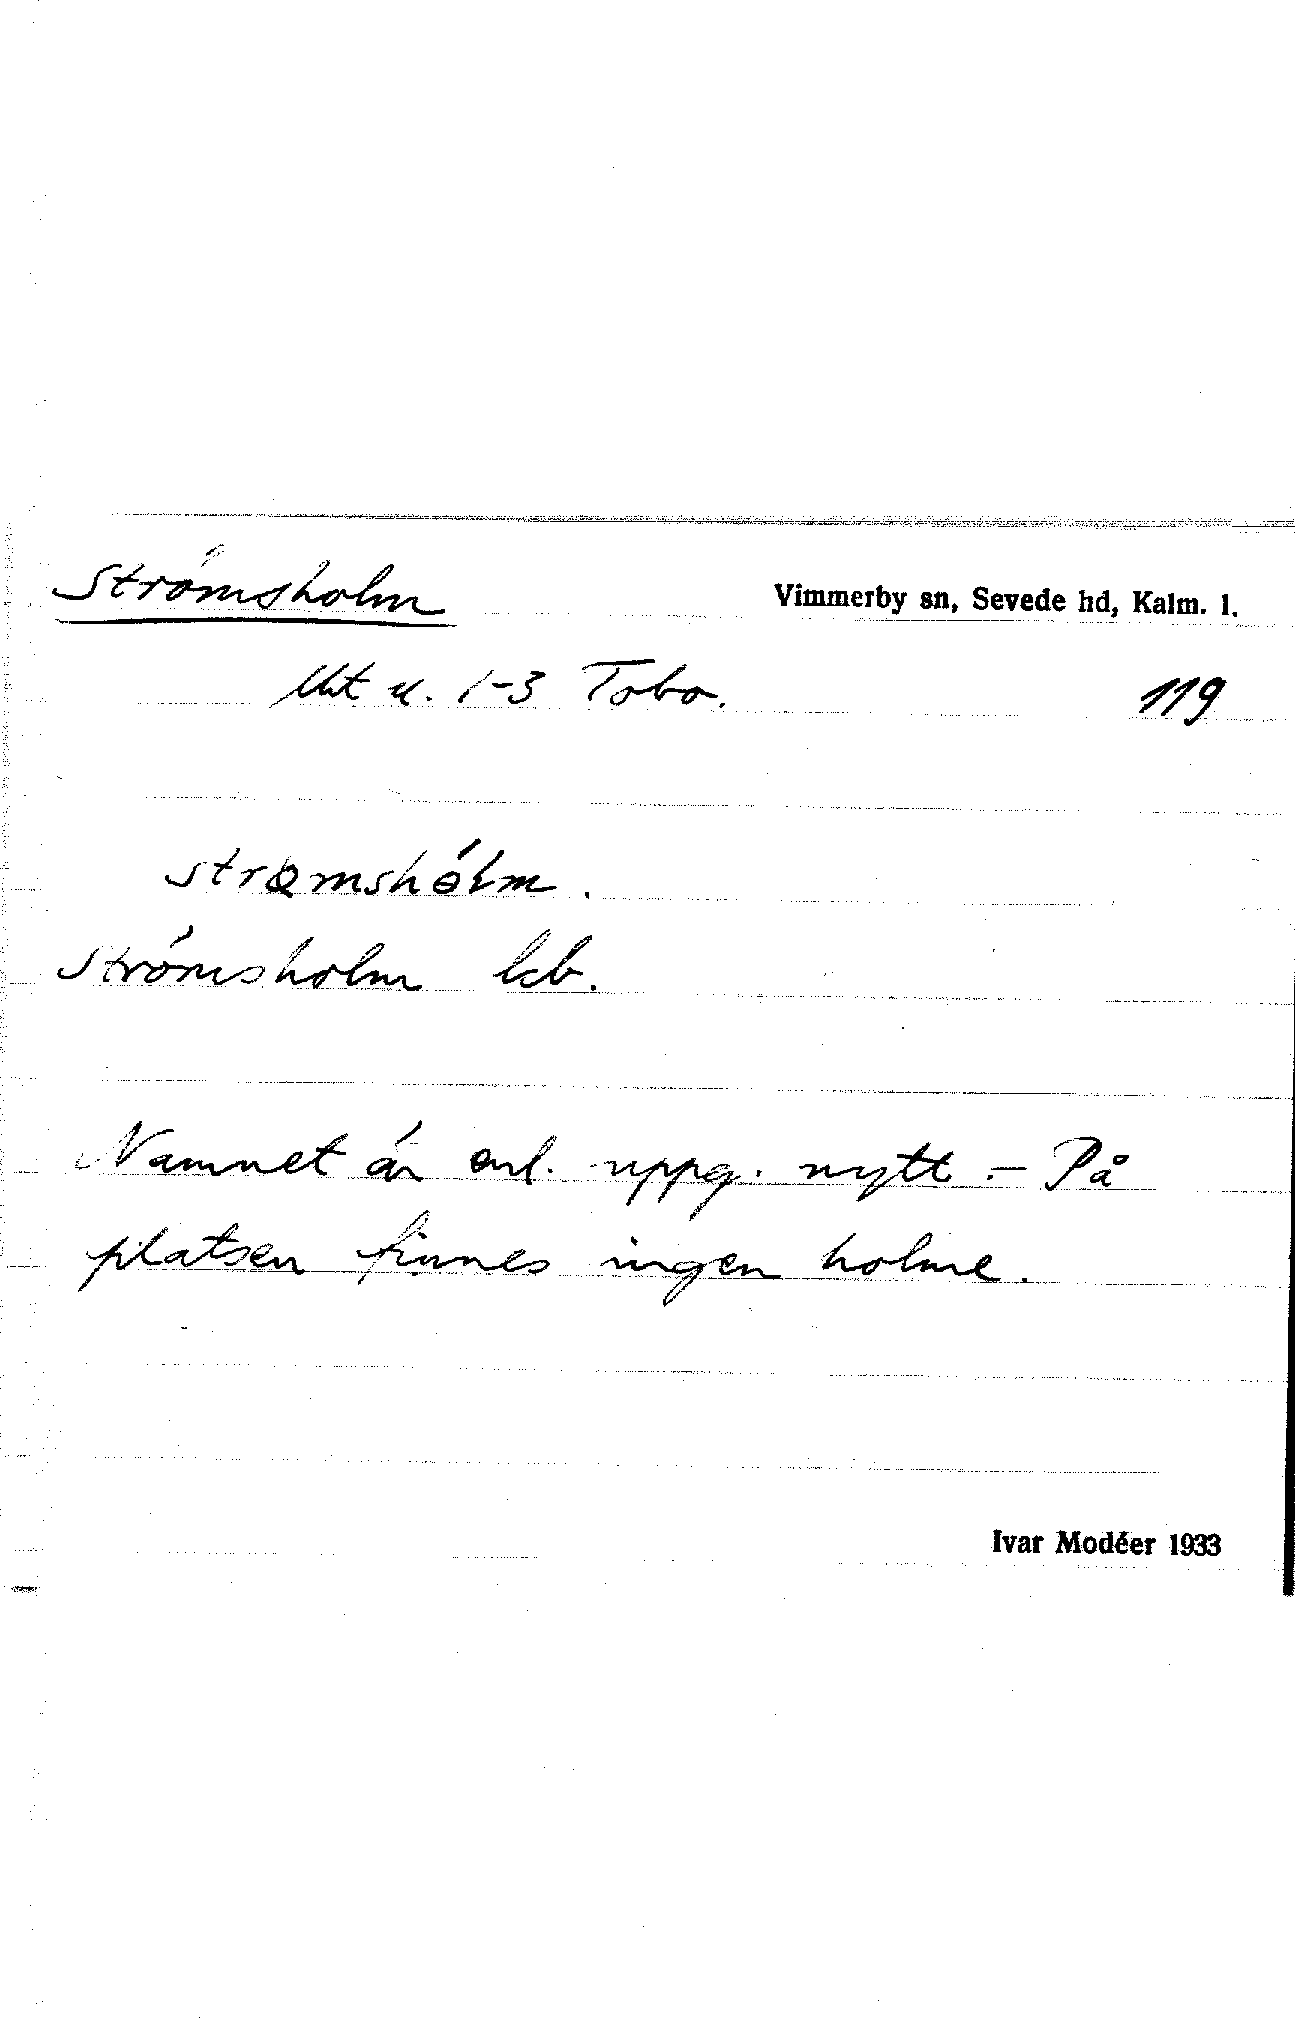 Strömsholm Vimmerby sn, Sevede hd, Kalm. l.
lht u. 1-3 Tobo. 119
Strömsholm kb.
Namnet är enl. uppg. nytt. - På
platsen finnes ingen holme.
Ivar Modéer 1933